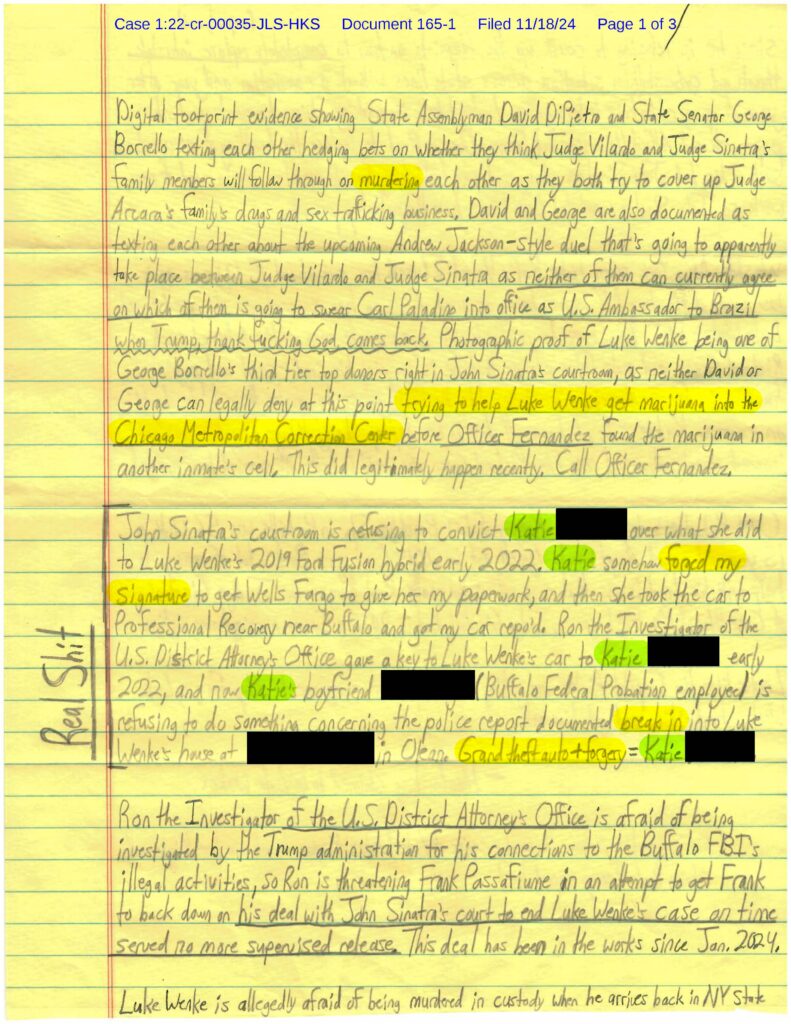 Case 1:22-cr-00035-JLS-HKS Document 165-1 Filed 11/18/24 Page 1 of 3
Digital footprint evidence showing State Assemblyman David DiPietro and State Senator George
Borrello texting each other hedging bets on whether they think Judge Vilardo and Judge Sinatra's
family members will follow through on murdering each other as they both try to cover up Judge
Arcara's family's drugs and sex trafficking business. David and George are also documented as
texting each other about the upcoming Andrew Jackson-style duel that's going to apparently
take place between Judge Vilardo and Judge Sinatra as neither of them can currently agree
on which of them is going to swear Carl Paladino into office as U.S. Ambassador to Brazil
when Trump, thank fucking God, comes back. Photographic proof of Luke Wenke being one of
George Borrello's third tier top donors right in John Sinatra's courtroom, as neither David or
George can legally deny at this point trying to help Luke Wenke get marijuana into the
Chicago Metropolitan Correction Center before Officer Fernandez found the marijuana in
another inmate's cell. This did legitimately happen recently. Call Officer Fernandez.
Real Shit
John Sinatra's courtroom is refusing to convict Katie over what she did
to Luke Wenke's 2019 Ford Fusion hybrid early 2022. Katie somehow forged my
signature to get Wells Fargo to give her my paperwork, and then she took the car to
Professional Recovery near Buffalo and got my car repo'd. Ron the Investigator of the
U.S. District Attorney's Office gave a key to Luke Wenke's car to Katie early
2022, and now Katie's boyfriend (Buffalo Federal Probation employee) is
refusing to do something concerning the police report documented break in into Luke
Wenke's house at in Olean. Grand theft auto + forgery = Katie
Ron the Investigator of the U.S. District Attorney's Office is afraid of being
investigated by the Trump administration for his connections to the Buffalo FBI's
illegal activities, so Ron is threatening Frank Passafiume in an attempt to get Frank
to back down on his deal with John Sinatra's court to end Luke Wenke's case on time
served no more supervised release. This deal has been in the works since Jan. 2024.
Luke Wenke is allegedly afraid of being murdered in custody when he arrives back in NY State